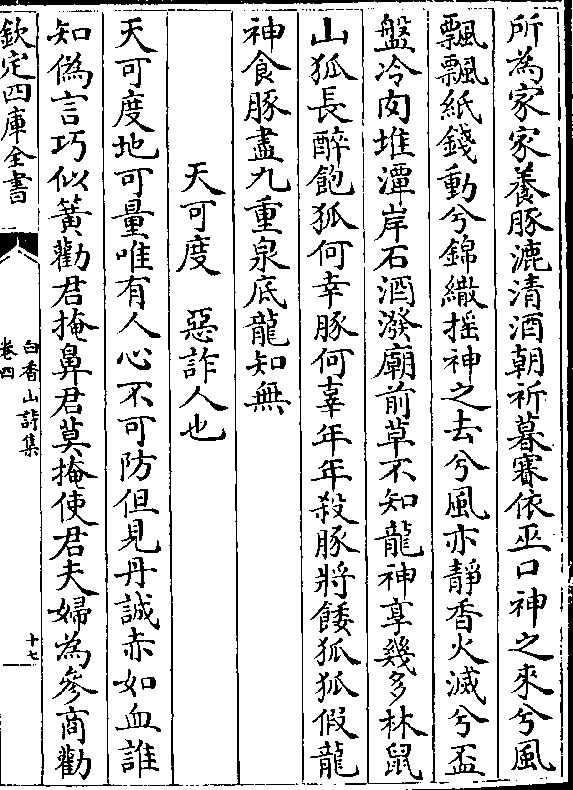 所為家家養豚漉清酒朝祈暮賽依巫口神之來兮風
飄飄紙錢動兮錦繖揺神之去兮風亦靜香火滅兮盃
盤冷肉堆潭岸石酒潑廟前草不知龍神享幾多林鼠
山狐長醉飽狐何幸豚何辜年年殺豚將餧狐狐假龍
神食豚盡九重泉底龍知無
天可度　惡詐人也
天可度地可量唯有人心不可防但見丹誠赤如血誰
知偽言巧似簧勸君掩鼻君莫掩使君夫婦為參商勸
欽定四庫全書
白香山詩集
卷四
十七